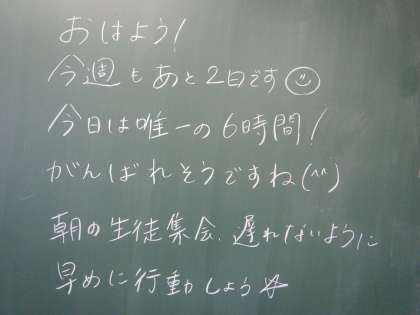 おはよう!
今週もあと2日です☺
今日は唯一の6時間!
がんばれそうですね(^^)
朝の生徒集会、遅れないように
早めに行動しよう☆